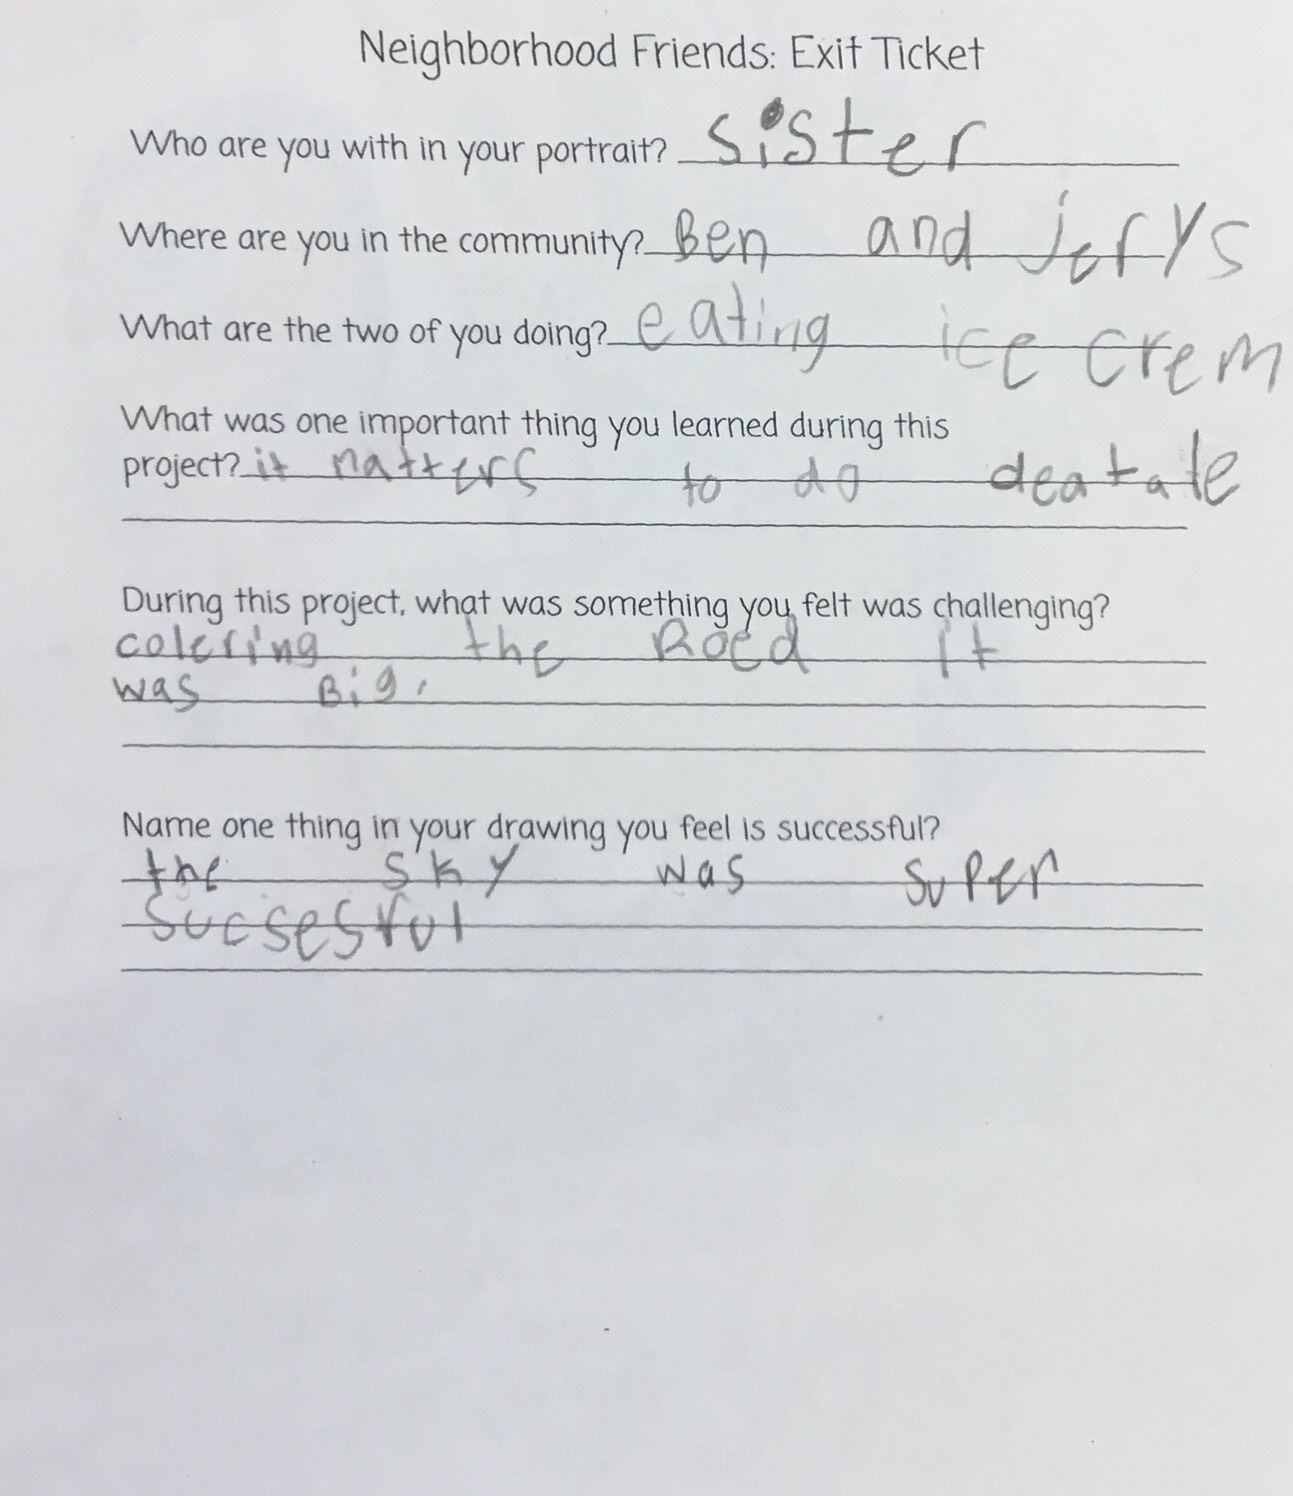 Neighborhood Friends: Exit Ticket
Who are you with in your portrait? sister
Where are you in the community? Ben and jerys
What are the two of you doing? eating ice crem
What was one important thing you learned during this
project? it natters to do deatale
During this project, what was something you felt was challenging?
colering the Roed it
was Big.
Name one thing in your drawing you feel is successful?
the sky was super
sucsesful